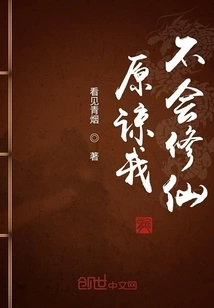 不会修仙
原谅我
看见青烟 ◎ 著
创世中文网